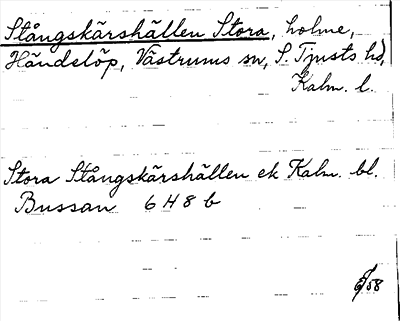 Stångskärshällen Stora, holme,
Händelöp, Västrums sn, S. Tjusts hd,
Kalm. l.
Stora Stångskärshällen ek Kalm. bl.
Bussan 6 H 8 b